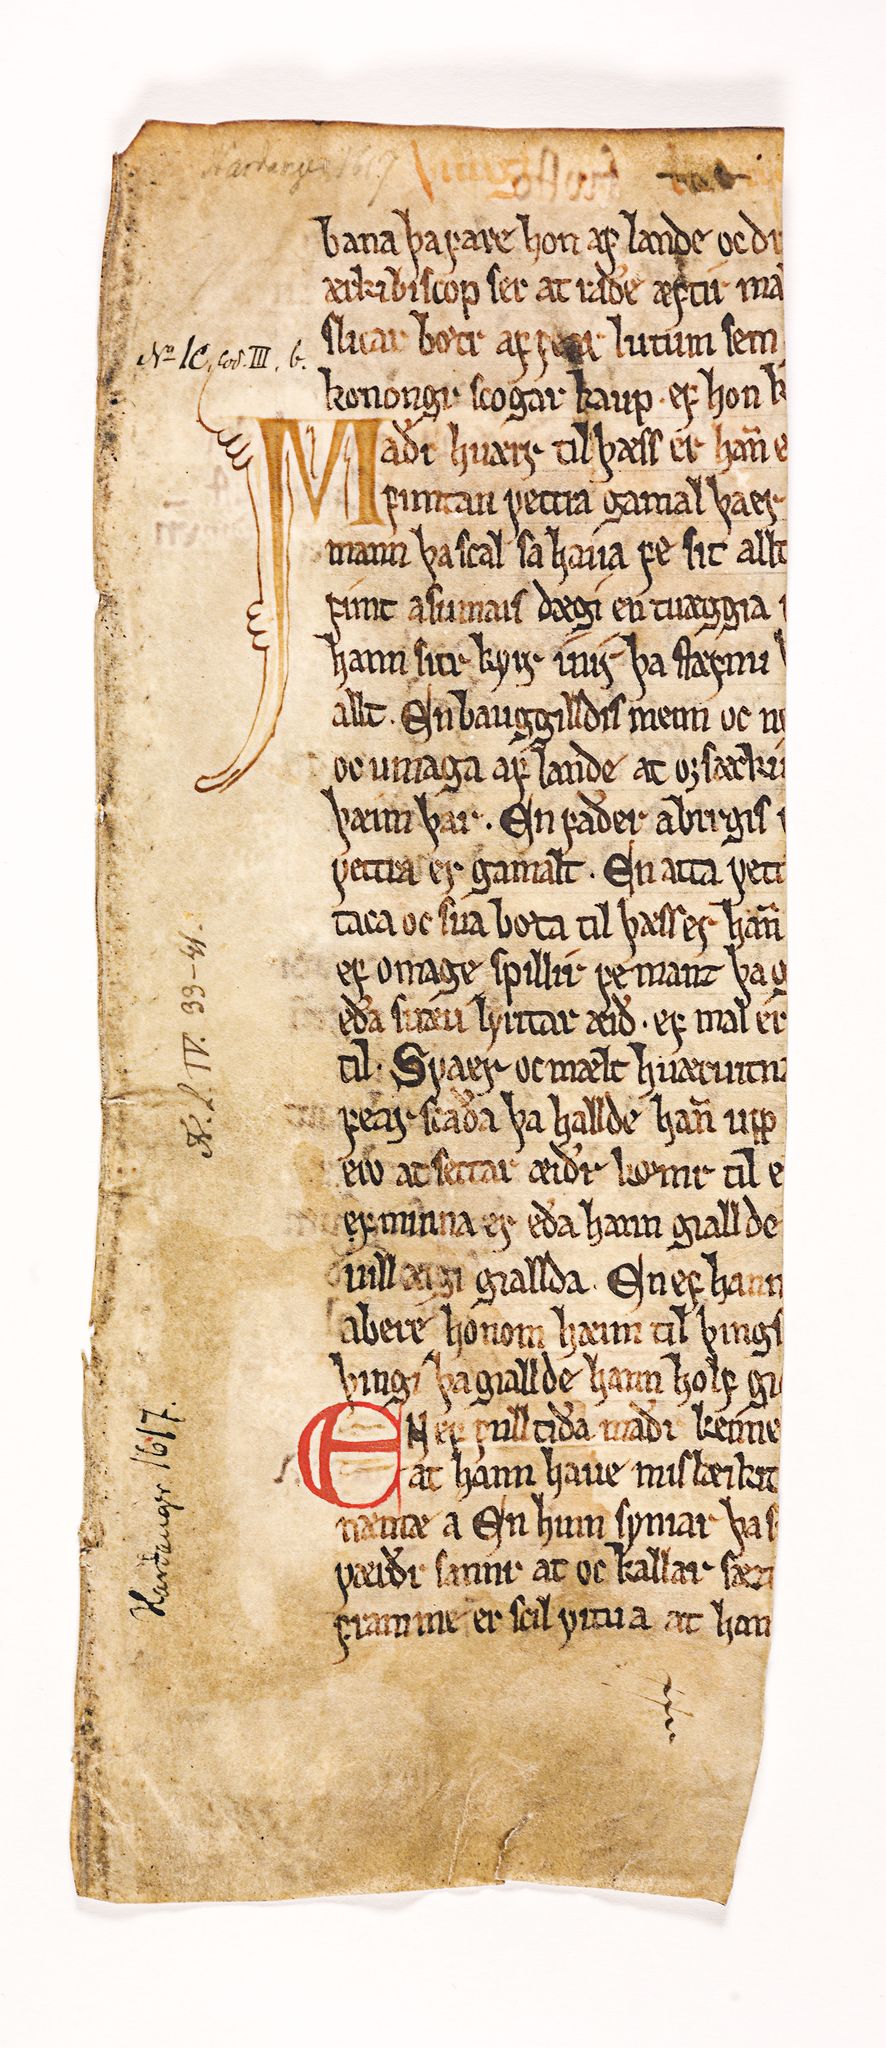 Hardanger 1617
bana þa fare hon af lande oc dr
ærkibiscop ser at raðe æftir ma
slicar bøtr af fear lutum sem
No 1C, cod. III, b.
konongr scogar kaup. ef hon k
Maðr huærs til þæss er han̄ e
fimtan vettra gamal þa er
mann þa scal sa haua fe sit allt
fimt a sumars dægi en tuæggia
hann sitr kyrr
allt. En bauggilldis menn oc n
oc umaga af lande at orsækiu
þæim þar. En faðer abirgis
vettra er gamalt. En atta vett
taca oc sua bøta til þæss er han̄
ef omage spillir fe manz þa g
eða suæu lyritar æið. ef mal er
til. Sva er oc mælt huæruitna
fear scaða þa hallde han̄ upp
ero at settar æiðr kømr til e
ef minna er eða hann giallde
uill æigi giallda. En ef hann
abere honom hæim til þings
þingi þa giallde hann holf gi
EN ef fulltiða maðr kenne
at hann haue mislæikit
næmæ a En hum syniar þa s
væiðr sannr at oc kallar sær
framme er scil vitu a at hon
N. L. IV. 33-41.
Hardanger 1617.